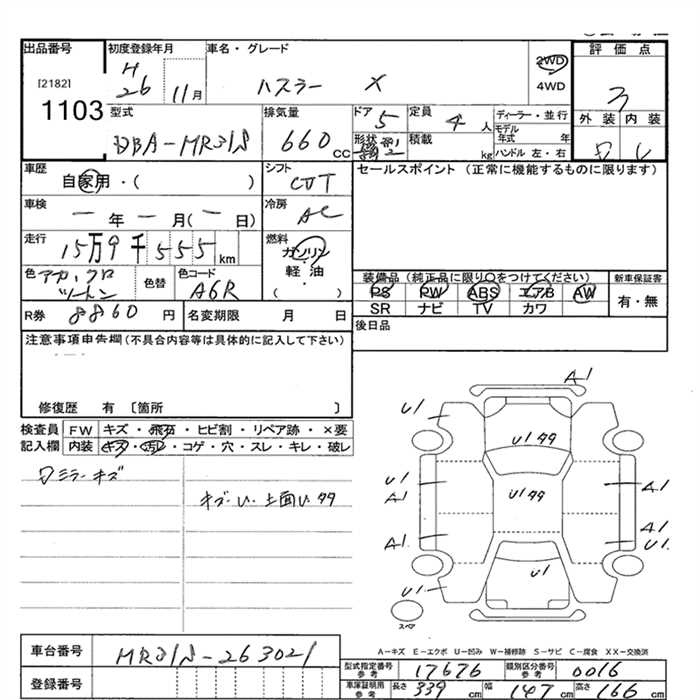 出品番号 初度登録年月 車名・グレード 評価点
[2182] H 26 11月 ハスラー X 2WD 4WD 3
1103
型式 排気量 ドア 定員 ディーラー・並行 外装 内装
DBA-MR31S 660cc 5 4人 モデル年式 年
形状 積載 kg ハンドル 左・右
車歴 シフト セールスポイント (正常に機能するものに限ります)
自家用・( ) CVT
車検 冷房
一年一月(一日) AC
走行 燃料
15万9千555km ガソリン・軽油・( )
色 アカ,クロ ツートン 色替 色コード A6R
装備品(純正品に限り○をつけてください) 新車保証書
PS PW ABS エアB AW 有・無
SR ナビ TV カワ
R券 8860円 名変期限 月 日
後日品
注意事項申告欄(不具合内容等は具体的に記入して下さい)
修復歴 有 〔箇所 〕
検査員 FW キズ・飛石・ヒビ割・リペア跡・×要
記入欄 内装 キズ・汚レ・コゲ・穴・スレ・キレ・破レ
ミラーキズ
キズ・U・
A1
U1 U1 99
U1 A1 U1 99 A1
A1 A1 U1
U1 U1
スペア
A-キズ E-エクボ U-凹み W-補修跡 S-サビ C-腐食 XX-交換済
車台番号 MR31S-263021
型式指定番号 参考 17676 類別区分番号 参考 0016
登録番号
車庫証明用 参考 長さ 339cm 幅 147cm 高さ 166cm